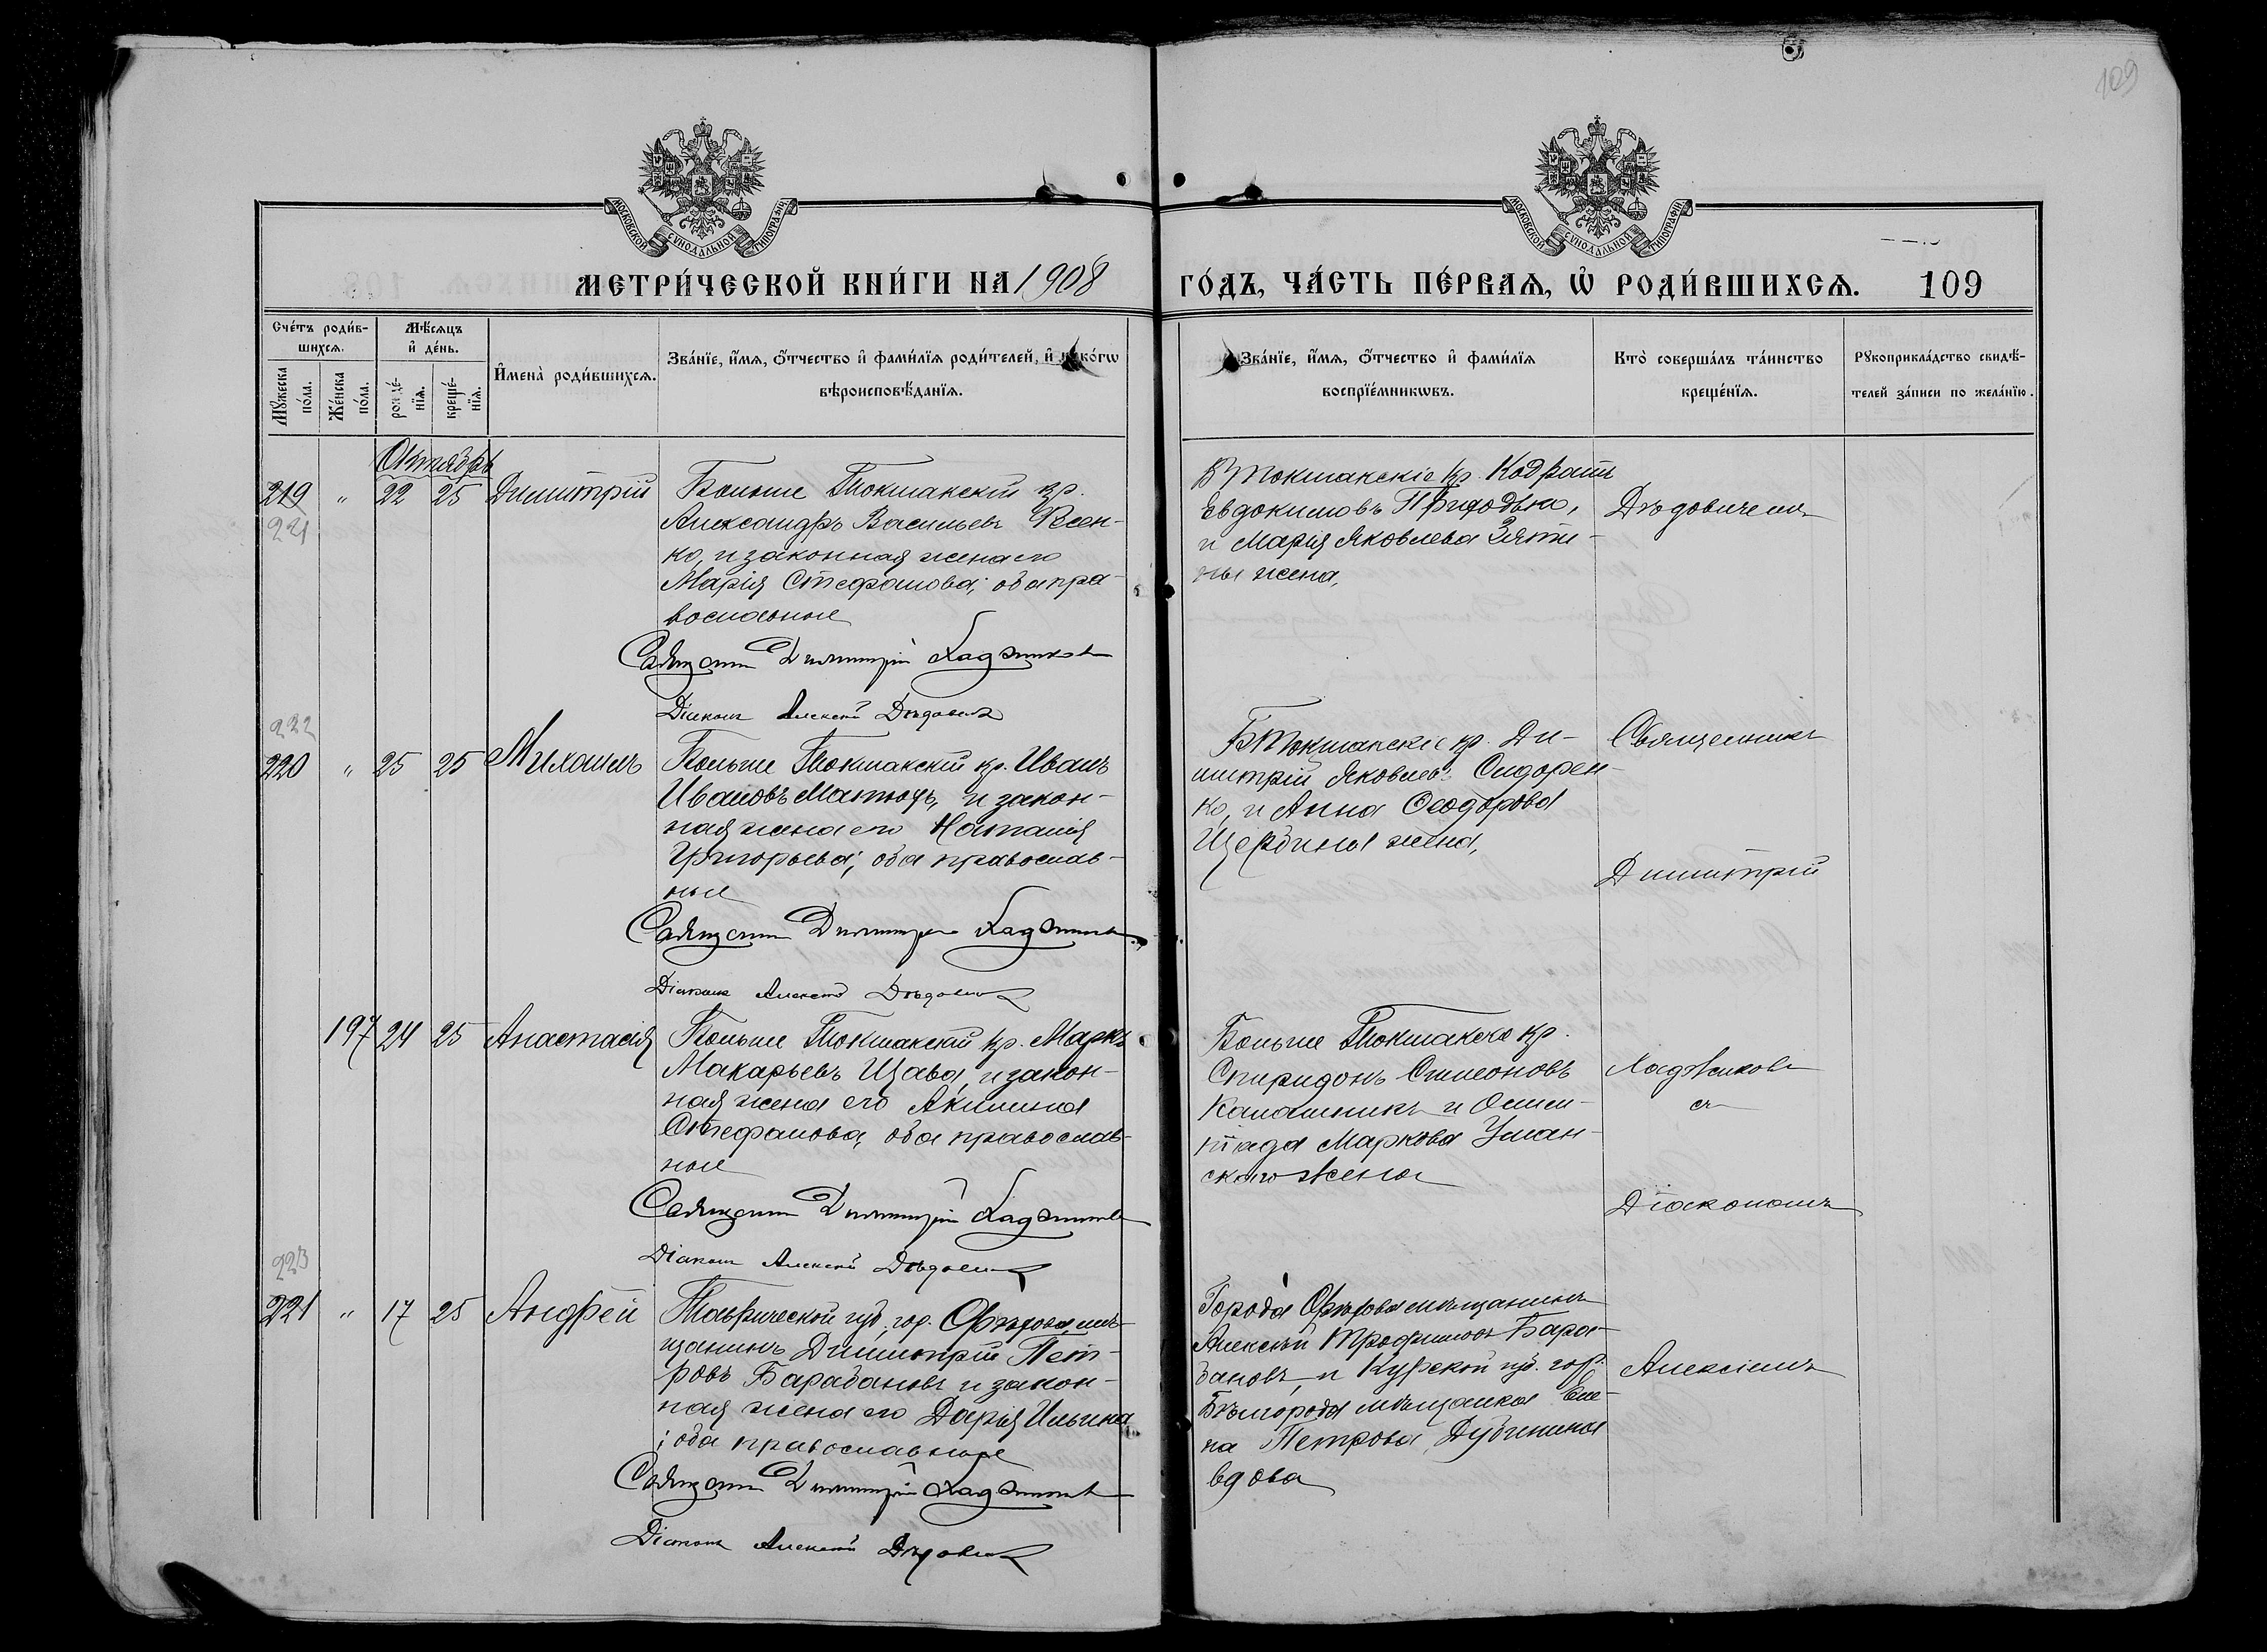 109
МОСКОВСКОЙ СѴНОДАЛЬНОЙ ТИПОГРАФІИ
МОСКОВСКОЙ СѴНОДАЛЬНОЙ ТИПОГРАФІИ
МЕТРИ́ЧЕСКОЙ КНИ́ГИ НА 1908
ГО́ДЪ, ЧА́СТЬ ПЕ́РВАѦ, Ѡ҆ РОДИ́ВШИХСѦ. 109
Сче́тъ роди́в-
шихсѧ.
Мѣ́сѧцъ
и҆ де́нь.
Мꙋ́жеска
по́ла.
Же́нска
по́ла.
рожде́-
нїѧ.
креще́-
нїѧ.
И҆мена̀ роди́вшихсѧ.
Зва́нїе, и҆́мѧ, ѻ҆́тчество и҆ фами́лїѧ роди́телей, и҆ како́гѡ
вѣроисповѣ́данїѧ.
Зва́нїе, и҆́мѧ, ѻ҆́тчество и҆ фами́лїѧ
воспрїе́мникѡвъ.
Кто̀ соверша́лъ та́инство
креще́нїѧ.
Рꙋкоприкла́дство свидѣ́-
телей за́писи по жела́нїю.
Октябрь
219 " 22 25 Димитрій
221
Больше Токмакскій кр.
Александръ Васильевъ
ко, и законная жена его
Марія Стефанова; оба пра-
вославные
Священникъ Димитрій Хаджиновъ
Діаконъ Алексій Дѣдовичъ
Б Токмакскіе кр. Кодратъ
Евдокимовъ Пригодька,
и Марія Яковлева Зяти-
ны жена,
Дѣдовичемъ
222
220 " 25 25 Михаилъ
Больше Токмакскій кр. Иванъ
Ивановъ и закон-
ная жена его Наталія
Григорьева; оба православ-
ные
Священникъ Димитрій Хаджиновъ
Діаконъ Алексій Дѣдовичъ
Б Токмакскіе кр. Ди-
митрій Яковлевъ Сидорен-
ко, и Анна Ѳеодорова
Щербины жена,
Священникъ
Димитрій
197 24 25 Анастасія
Больше Токмакскій кр. Маркъ
Макарьевъ Щава, и закон-
ная жена его Акилина
Стефанова, оба православ-
ные
Священникъ Димитрій Хаджиновъ
Діаконъ Алексій Дѣдовичъ
Больше Токмакскіе кр.
Спиридонъ Симеоновъ
Калашникъ и Олим-
піада Маркова Уман-
скаго жена
Хаджиновъ
съ
Діакономъ
223
221 " 17 25 Андрей
Таврической губ., гор. Орѣхова мѣ-
щанинъ Димитрій Пет-
ровъ Барабановъ и закон-
ная жена его Дарія Ильина
; оба православные
Священникъ Димитрій Хаджиновъ
Діаконъ Алексій Дѣдовичъ
Города Орѣхова мѣщанинъ
Алексѣй Трофимовъ Бара-
бановъ, и Курской губ. гор.
Бѣлгорода мѣщанка Еле-
на Петрова Дубинина
вдова
Алексіемъ